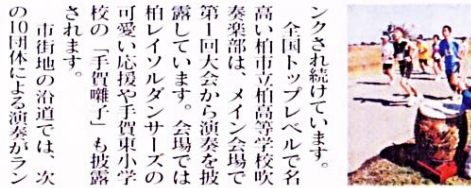 ンクされ続けています。
　全国トップレベルで名
高い柏市立柏高等学校吹
奏楽部は、メイン会場で
第1回大会から演奏を披
露しています。会場では
柏レイソルダンサーズの
可愛い応援や手賀東小学
校の「手賀囃子」も披露
されます。
　市街地の沿道では、次
の10団体による演奏がラン